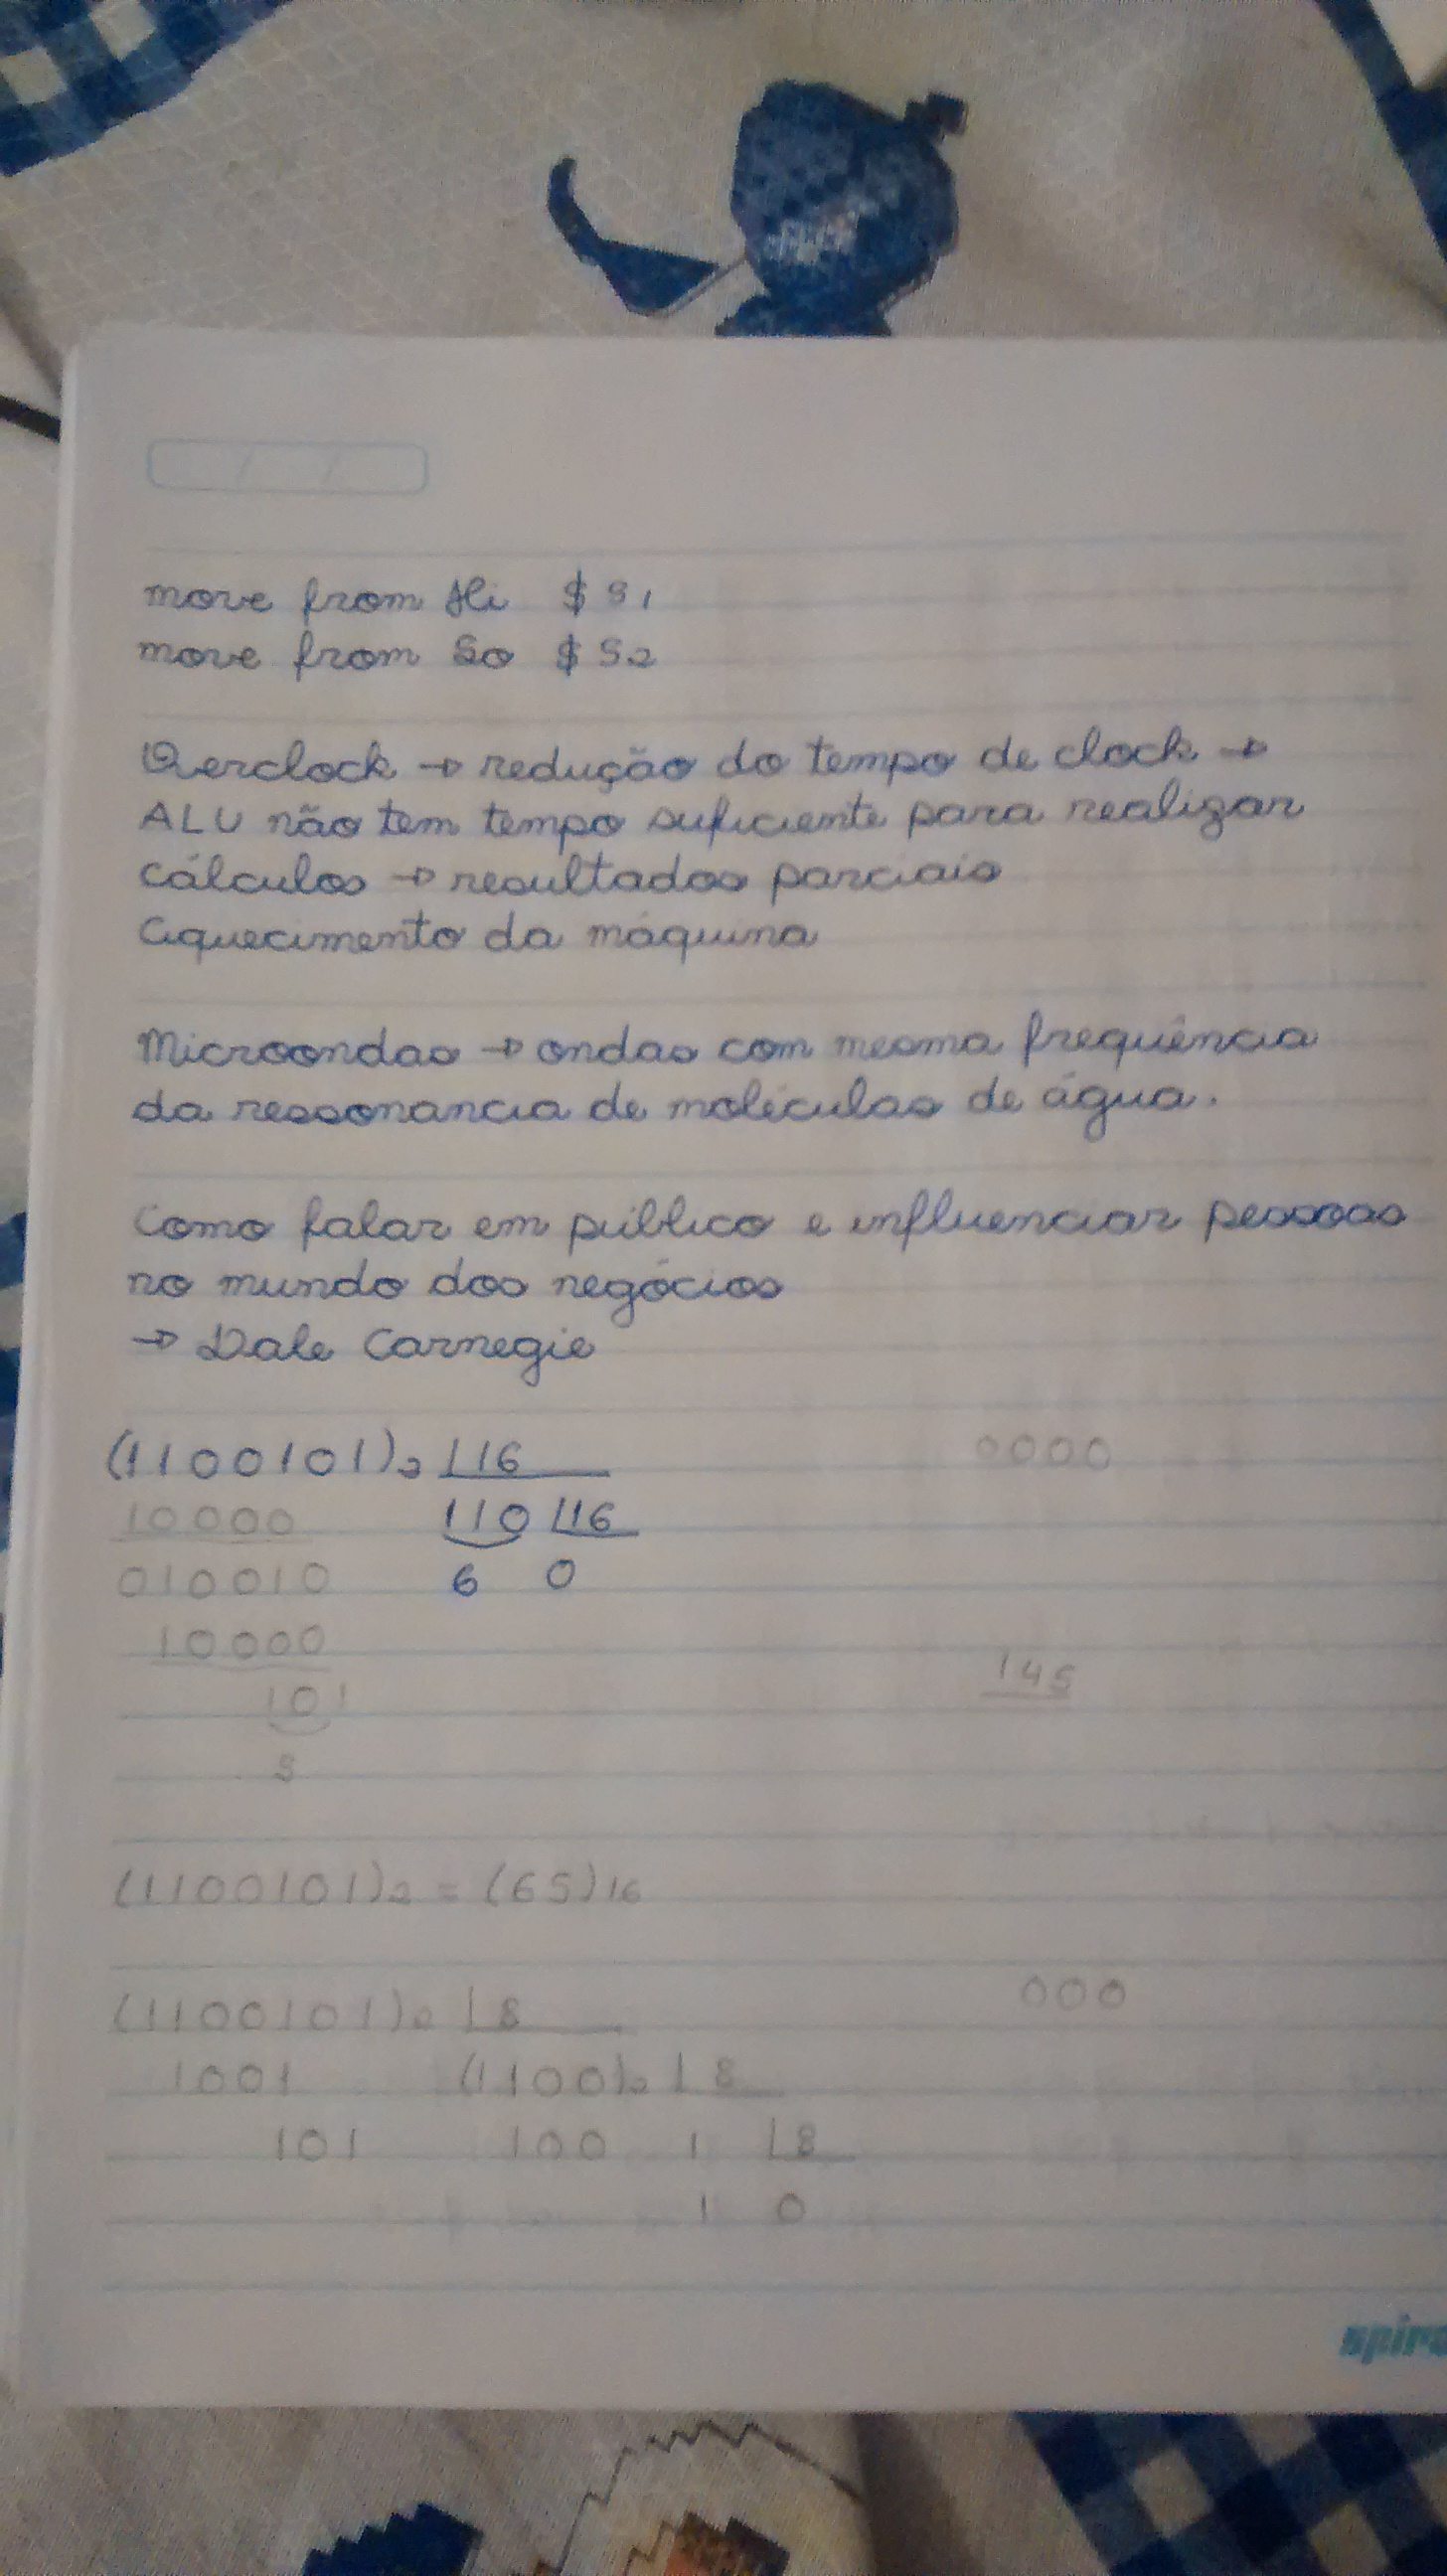 / /
move from Hi $s1
move from Lo $s2
Overclock → redução do tempo de clock →
ALU não tem tempo suficiente para realizar
cálculos → resultados parciais
Aquecimento da máquina
Microondas → ondas com mesma frequência
da ressonancia de moléculas de água.
Como falar em público e influenciar pessoas
no mundo dos negócios
→ Dale Carnegie
(1100101)2 |16 0000
10000 110 |16
010010 6 0
10000
101 145
5
(1100101)2 = (65)16
(1100101)2 |8 000
1001 (1100)2 |8
101 100 1 |8
1 0